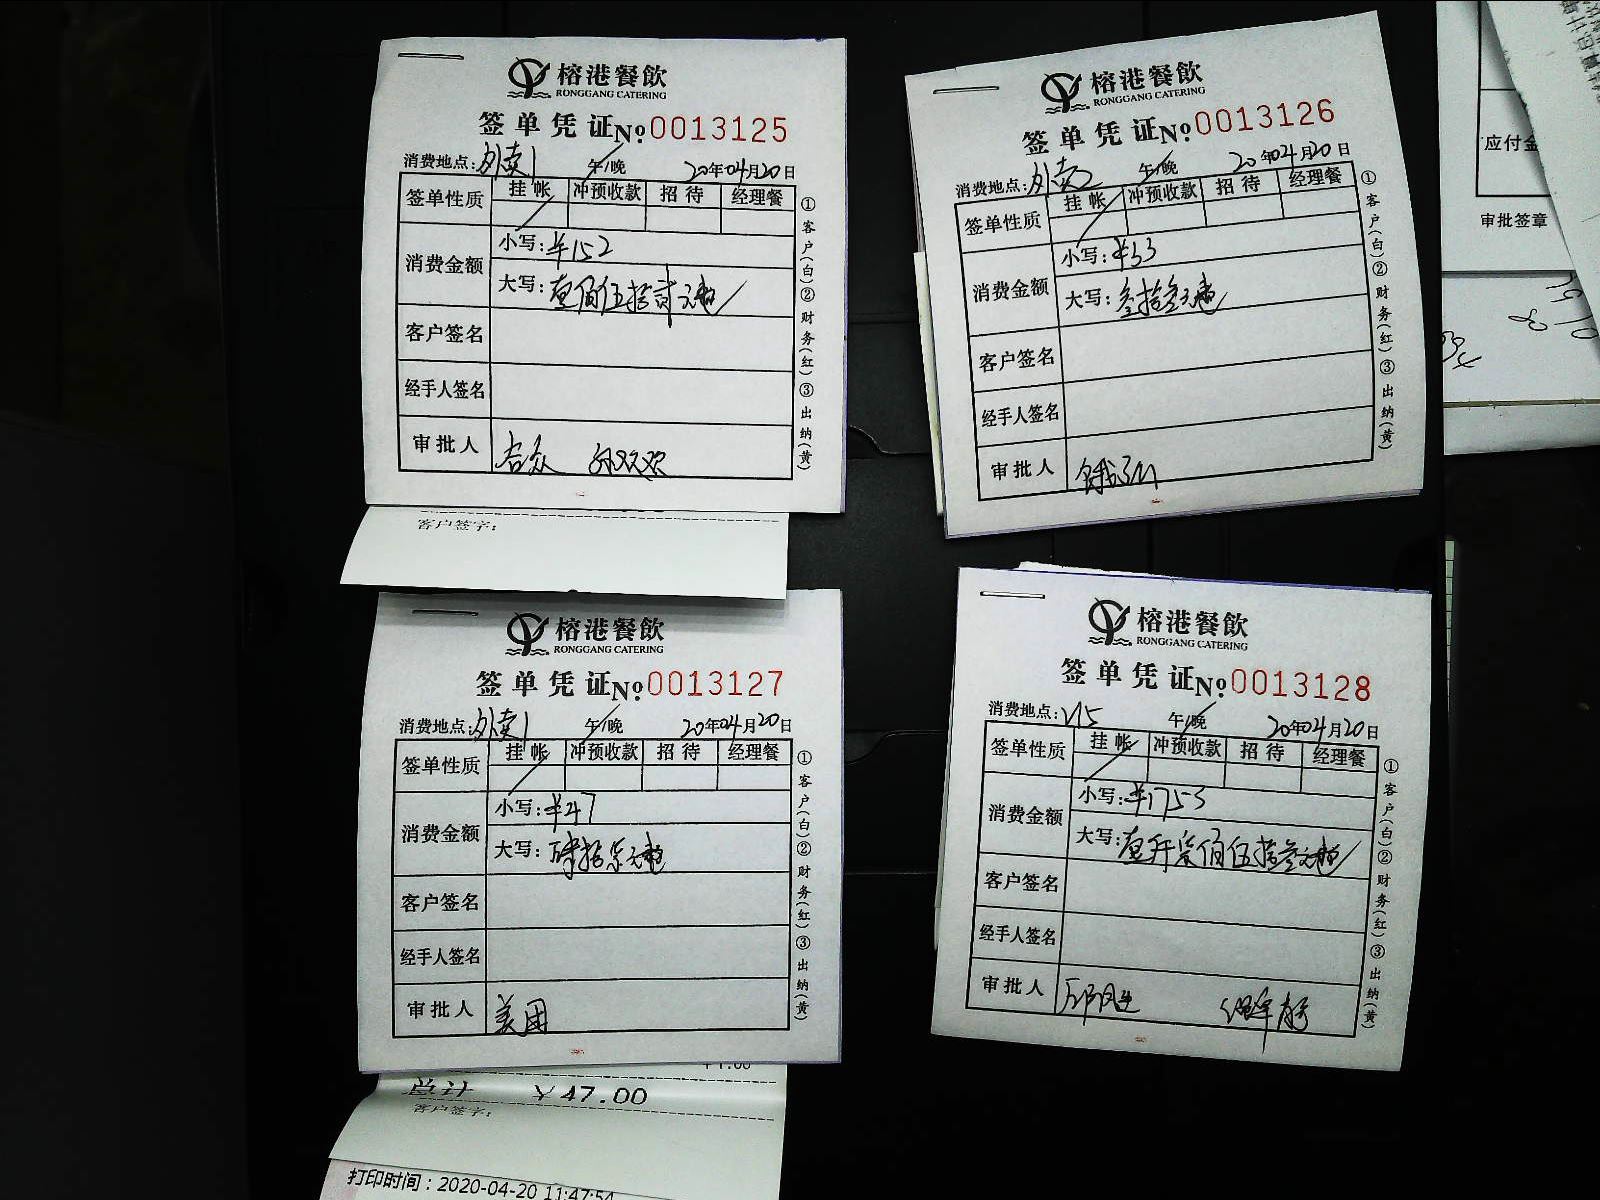 榕港餐飲
RONGGANG CATERING
签单凭证 No 0013125
消费地点:外卖1 午/晚 20年04月20日
签单性质 挂帐 冲预收款 招待 经理餐
消费金额 小写:¥152
大写:壹佰伍拾贰元整
客户签名
经手人签名
审批人
①客户(白)②财务(红)③出纳(黄)
客户签字:
榕港餐飲
RONGGANG CATERING
签单凭证 No 0013126
消费地点:外卖2 午/晚 20年04月20日
签单性质 挂帐 冲预收款 招待 经理餐
消费金额 小写:¥33
大写:叁拾叁元整
客户签名
经手人签名
审批人 饿了么
①客户(白)②财务(红)③出纳(黄)
榕港餐飲
RONGGANG CATERING
签单凭证 No 0013127
消费地点:外卖1 午/晚 20年04月20日
签单性质 挂帐 冲预收款 招待 经理餐
消费金额 小写:¥47
大写:肆拾柒元整
客户签名
经手人签名
审批人 美团
①客户(白)②财务(红)③出纳(黄)
总计 ¥47.00
客户签字:
打印时间:2020-04-20 11:47:54
榕港餐飲
RONGGANG CATERING
签单凭证 No 0013128
消费地点:V15 午/晚 20年04月20日
签单性质 挂帐 冲预收款 招待 经理餐
消费金额 小写:¥1753
大写:壹仟柒佰伍拾叁元整
客户签名
经手人签名
审批人
①客户(白)②财务(红)③出纳(黄)
应付金
审批签章